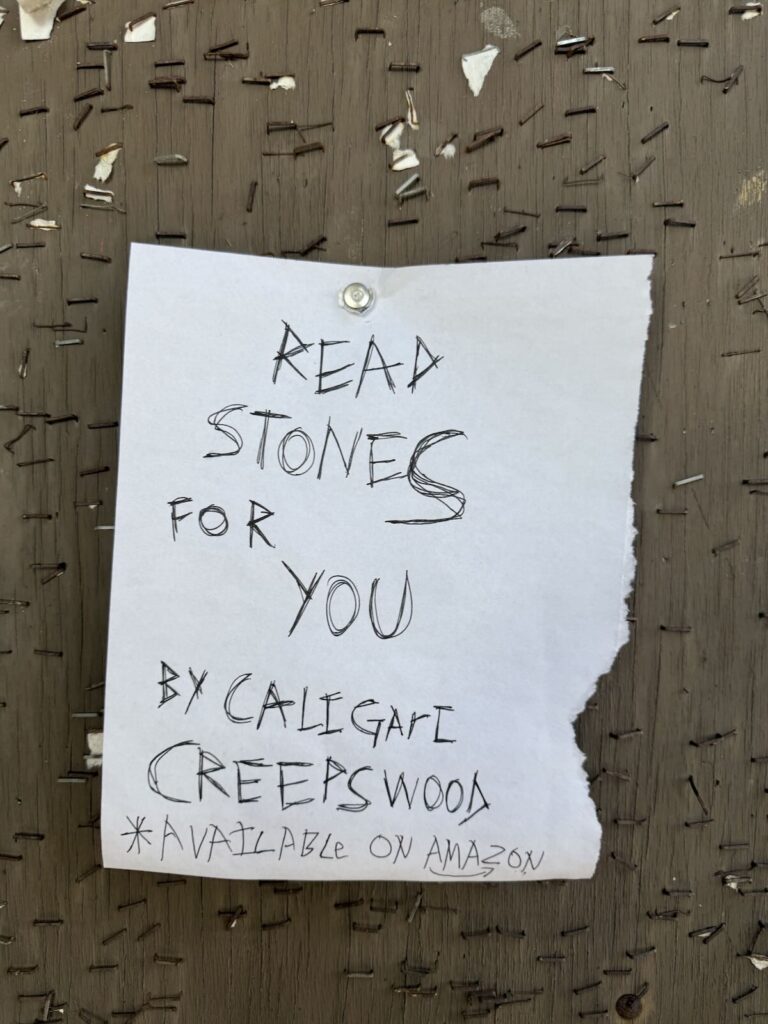 READ
STONES
FOR
YOU
BY CALIGArI
CREEPSWOOD
*AVAILABLe ON AMAZON